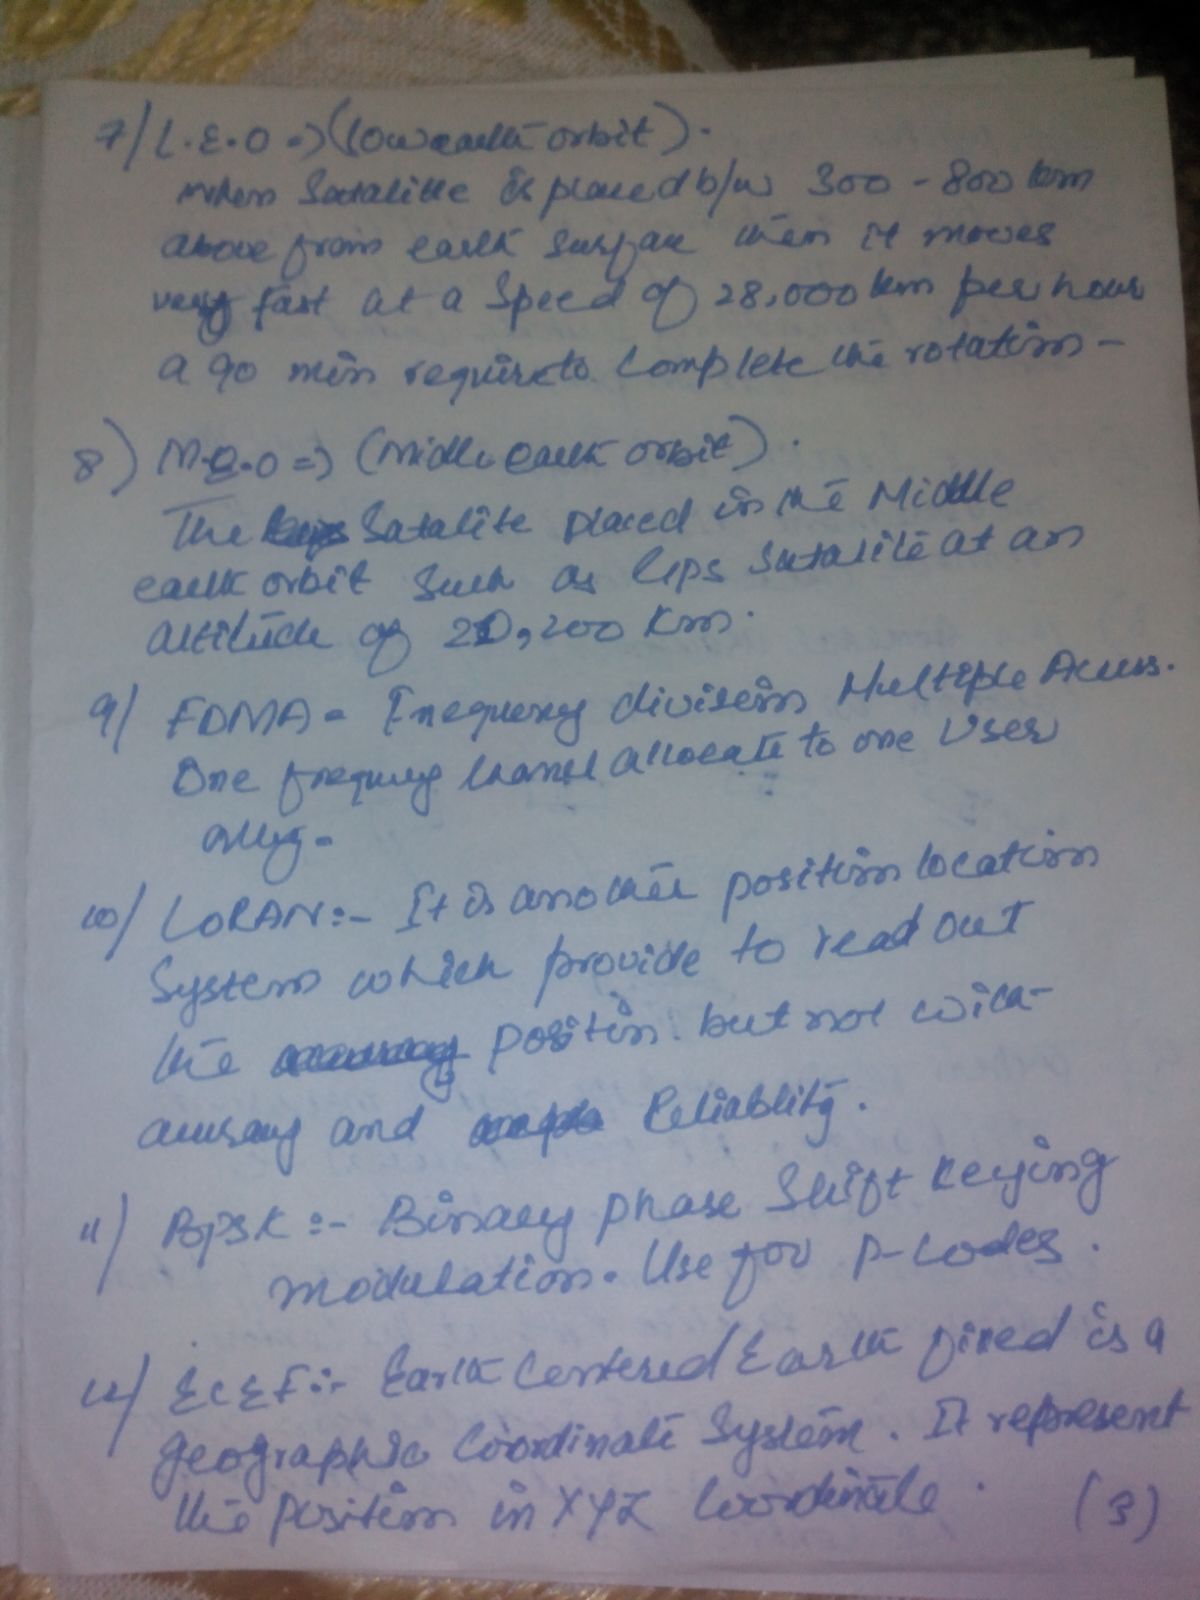 7/ L.E.O => (low earth orbit).
When Satalite is placed b/w 300 - 800 km
above from earth surface then it moves
very fast at a speed of 28,000 km per hour
a 90 min require to complete the rotation -
8) M.E.O => (Middle earth orbit).
The Satalite placed in the Middle
earth orbit such as Gps Satalite at an
altitude of 20,200 Km.
9/ FDMA - Frequency division Multiple Access.
One frequency channel allocate to one User
only -
10/ LORAN :- It is another position location
System which provide to read out
the position. but not with
accuracy and Reliablity.
11/ BPSK :- Binary phase Shift Keying
modulation. Use for P-Codes.
12/ ECEF :- Earth Centered Earth fixed is a
geographic Coordinate System. It represent
the position in XYZ Coordinate.
(3)